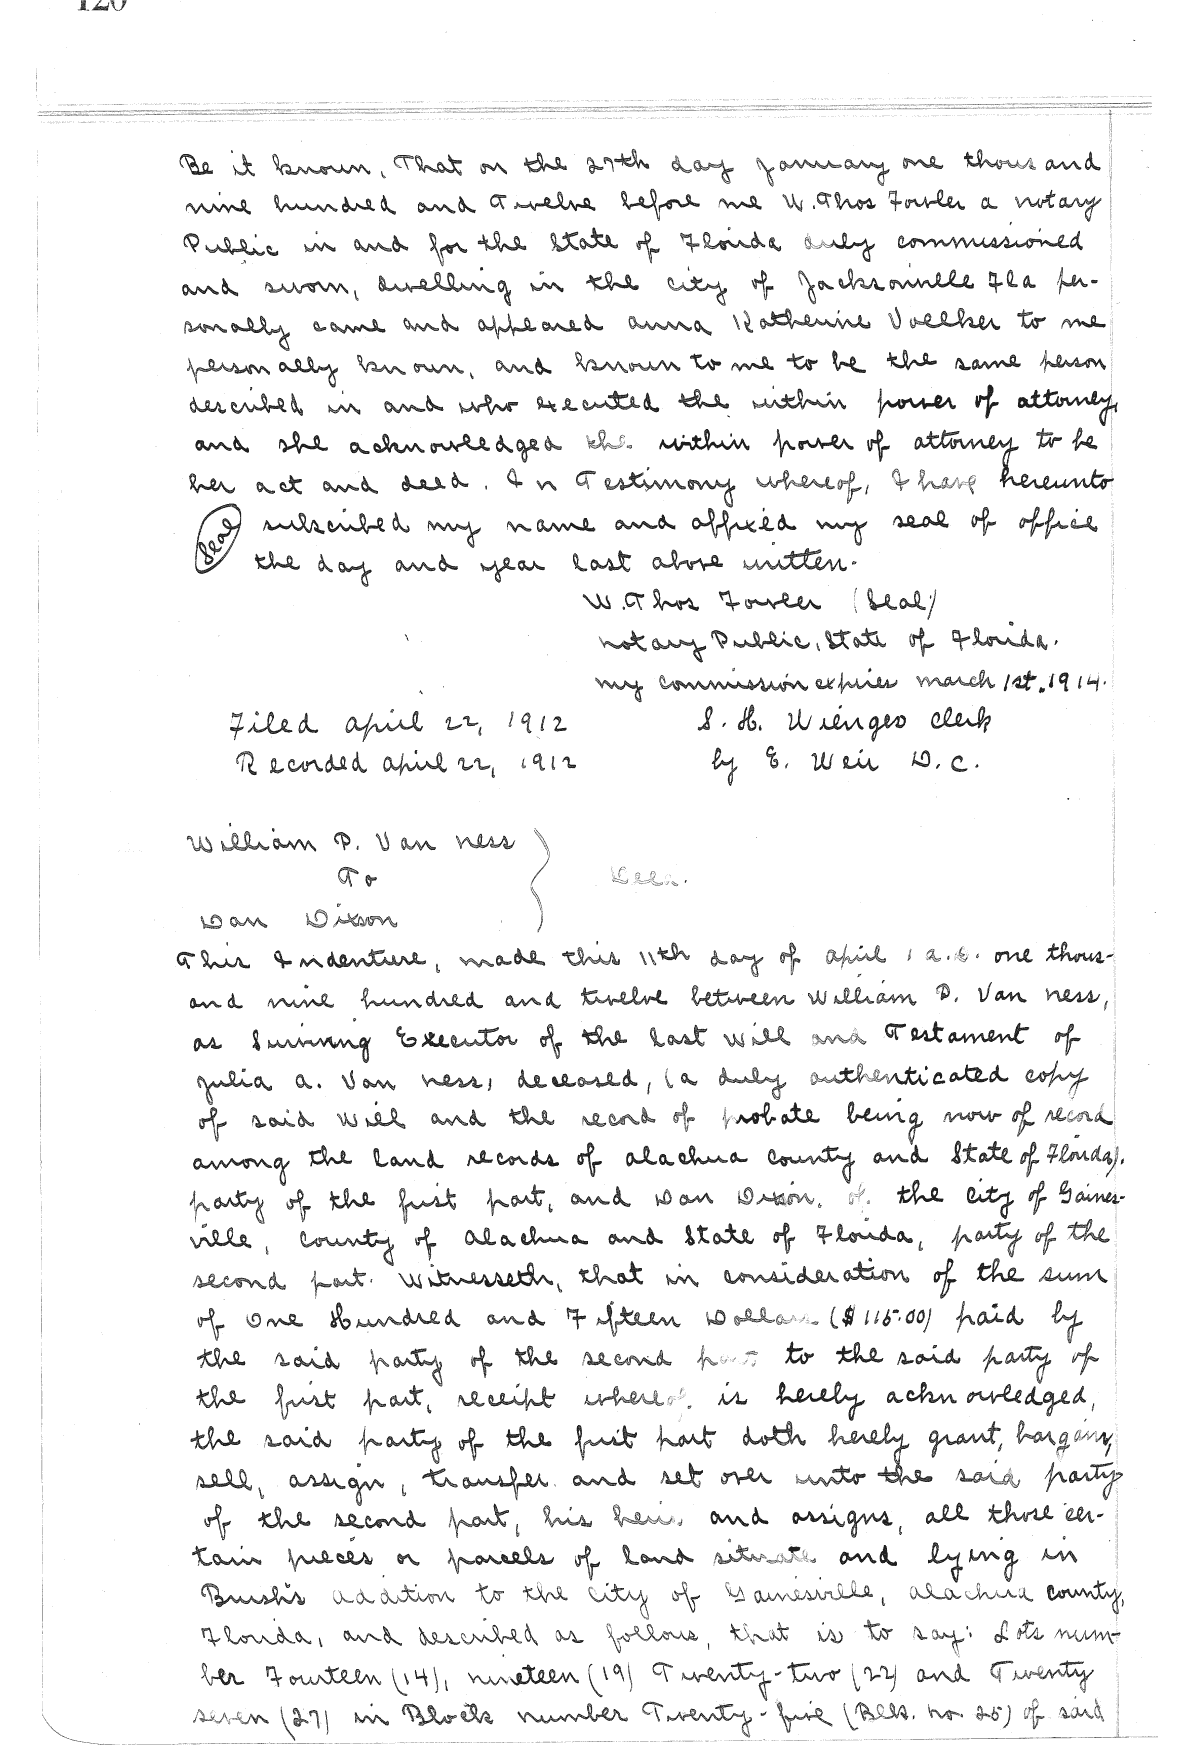 120
Be it known, That on the 27th day January one thousand
nine hundred and Twelve before me W. Thos Fowler a notary
Public in and for the State of Florida duly commissioned
and sworn, dwelling in the city of Jacksonville Fla per-
sonally came and appeared Anna Katherine Voelker to me
personally known, and known to me to be the same person
described in and who executed the within power of attorney,
and she acknowledged the within power of attorney to be
her act and deed. In Testimony whereof, I have hereunto
Seal subscribed my name and affixed my seal of office
the day and year last above written.
W. Thos Fowler (Seal)
Notary Public, State of Florida.
my commission expires march 1st. 1914.
Filed April 22, 1912 S. H. Wienges Clerk
Recorded April 22, 1912 by E. Weir D.C.
William P. Van Ness
To Deed.
Dan Dixon
This Indenture, made this 11th day of April, a.d. one thous-
and nine hundred and twelve between William P. Van Ness,
as Surviving Executor of the Last Will and Testament of
Julia A. Van Ness, deceased, (a duly authenticated copy
of said Will and the record of probate being now of record
among the land records of Alachua County and State of Florida),
party of the first part, and Dan Dixon, of the City of Gaines-
ville, County of Alachua and State of Florida, party of the
second part. Witnesseth, that in consideration of the sum
of One Hundred and Fifteen Dollars ($115.00) paid by
the said party of the second part to the said party of
the first part, receipt whereof is hereby acknowledged,
the said party of the first part doth hereby grant, bargain,
sell, assign, transfer and set over unto the said party
of the second part, his heirs and assigns, all those cer-
tain pieces or parcels of land situate and lying in
Brush's addition to the City of Gainesville, Alachua County,
Florida, and described as follows, that is to say: Lots num-
ber Fourteen (14), nineteen (19) Twenty-two (22) and Twenty
seven (27) in Block number Twenty-five (Blk. no. 25) of said